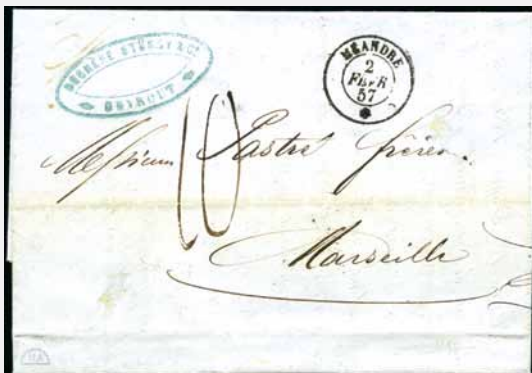 STÜSSY & Cⁱᵉ
BEYROUT
MÉANDRE
2
FEVR
57
10
Messieurs Pastré frères.
Marseille